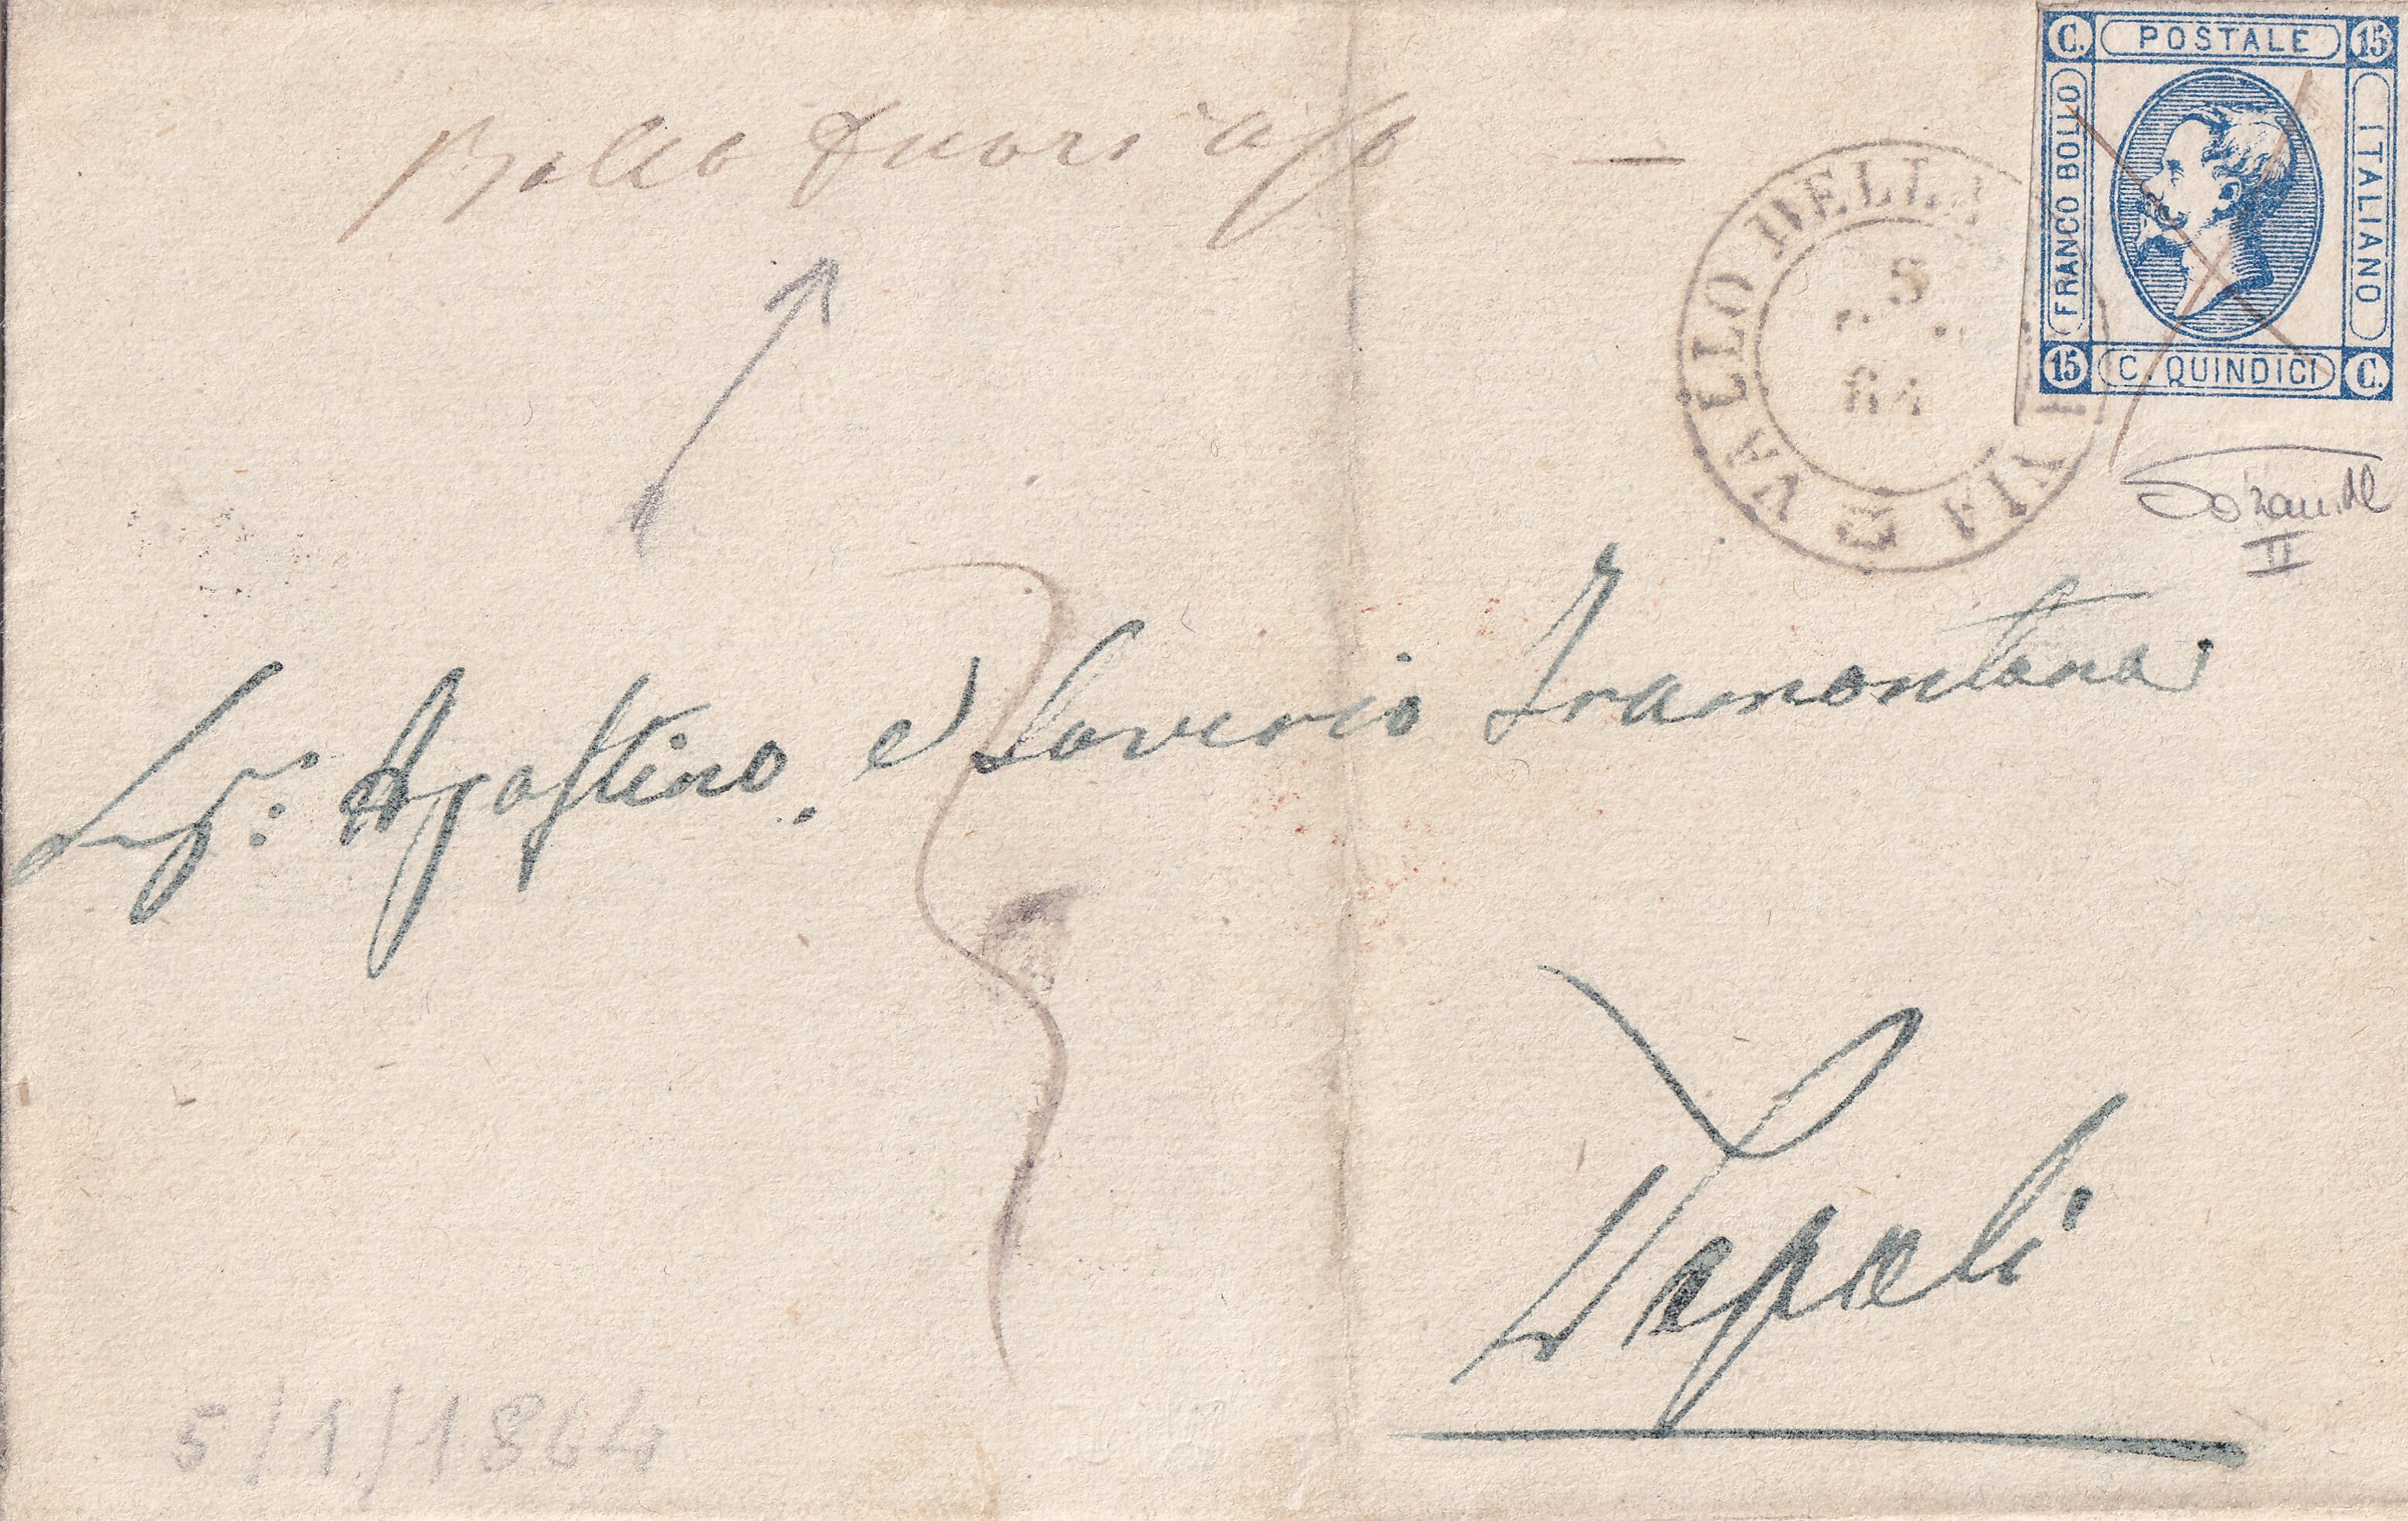 C. POSTALE 15
FRANCO BOLLO
ITALIANO
15 C. QUINDICI C.
Bollo fuori uso
VALLO DELLA
5
64
II
Sigr: Agostino, e Saverio Tramontano
3
Napoli
5/1/1864